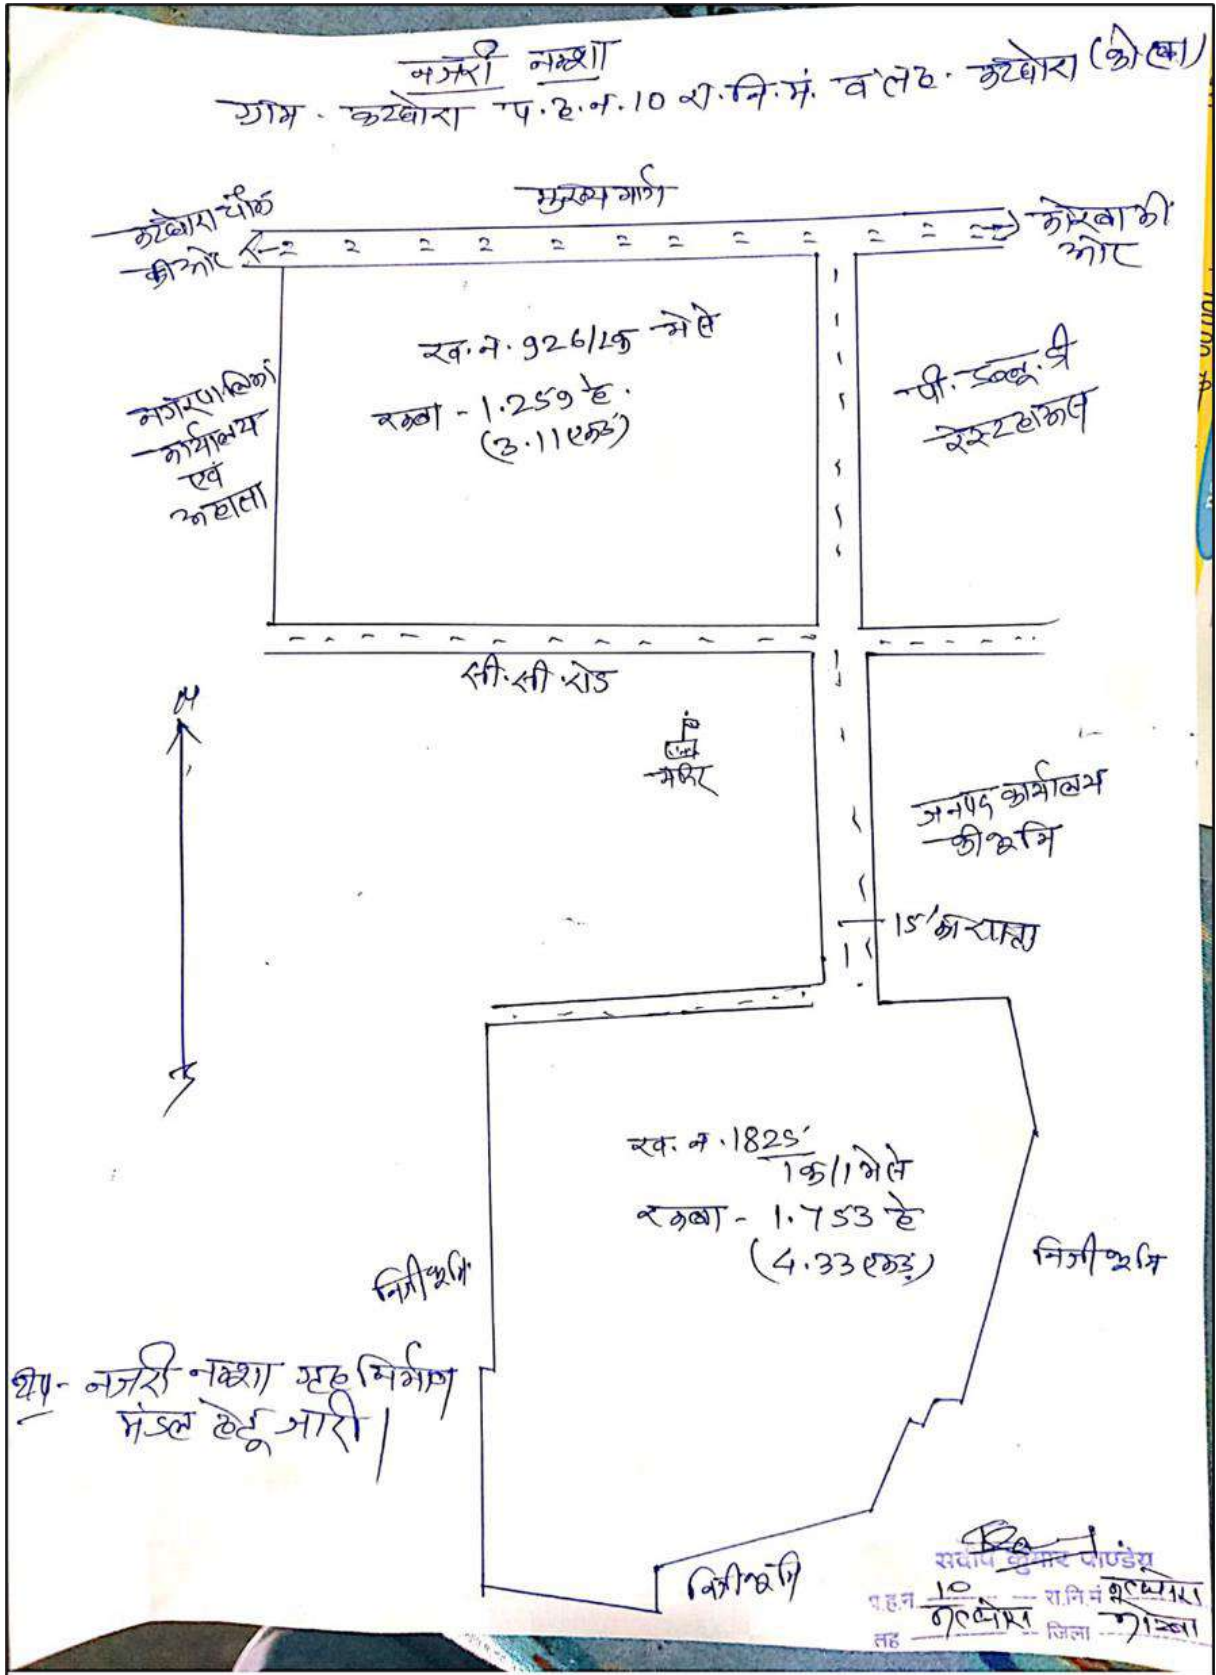 नजरी नक्शा
ग्राम - कटघोरा प.ह.न. 10 रा.नि.मं. व तह. कटघोरा (कोरबा)
मुख्य मार्ग
कटघोरा चौक
की ओर
कोरबा की
ओर
ख.न. 926/1क में से
रकबा - 1.259 हे.
(3.11 एकड़)
नगरपालिका
कार्यालय
एवं
अहाता
पी.डब्लू.डी
रेस्टहाऊस
सी.सी.रोड
मंदिर
जनपद कार्यालय
की भूमि
15' का रास्ता
ख.न. 1825
1क/1 में से
रकबा - 1.753 हे
(4.33 एकड़)
निजी भूमि
निजी भूमि
नजरी नक्शा गृह निर्माण
मंडल हेतु जारी।
निजी भूमि
कुमार पाण्डेय
प.ह.न 10 रा.नि.मं कटघोरा
तह कटघोरा जिला कोरबा